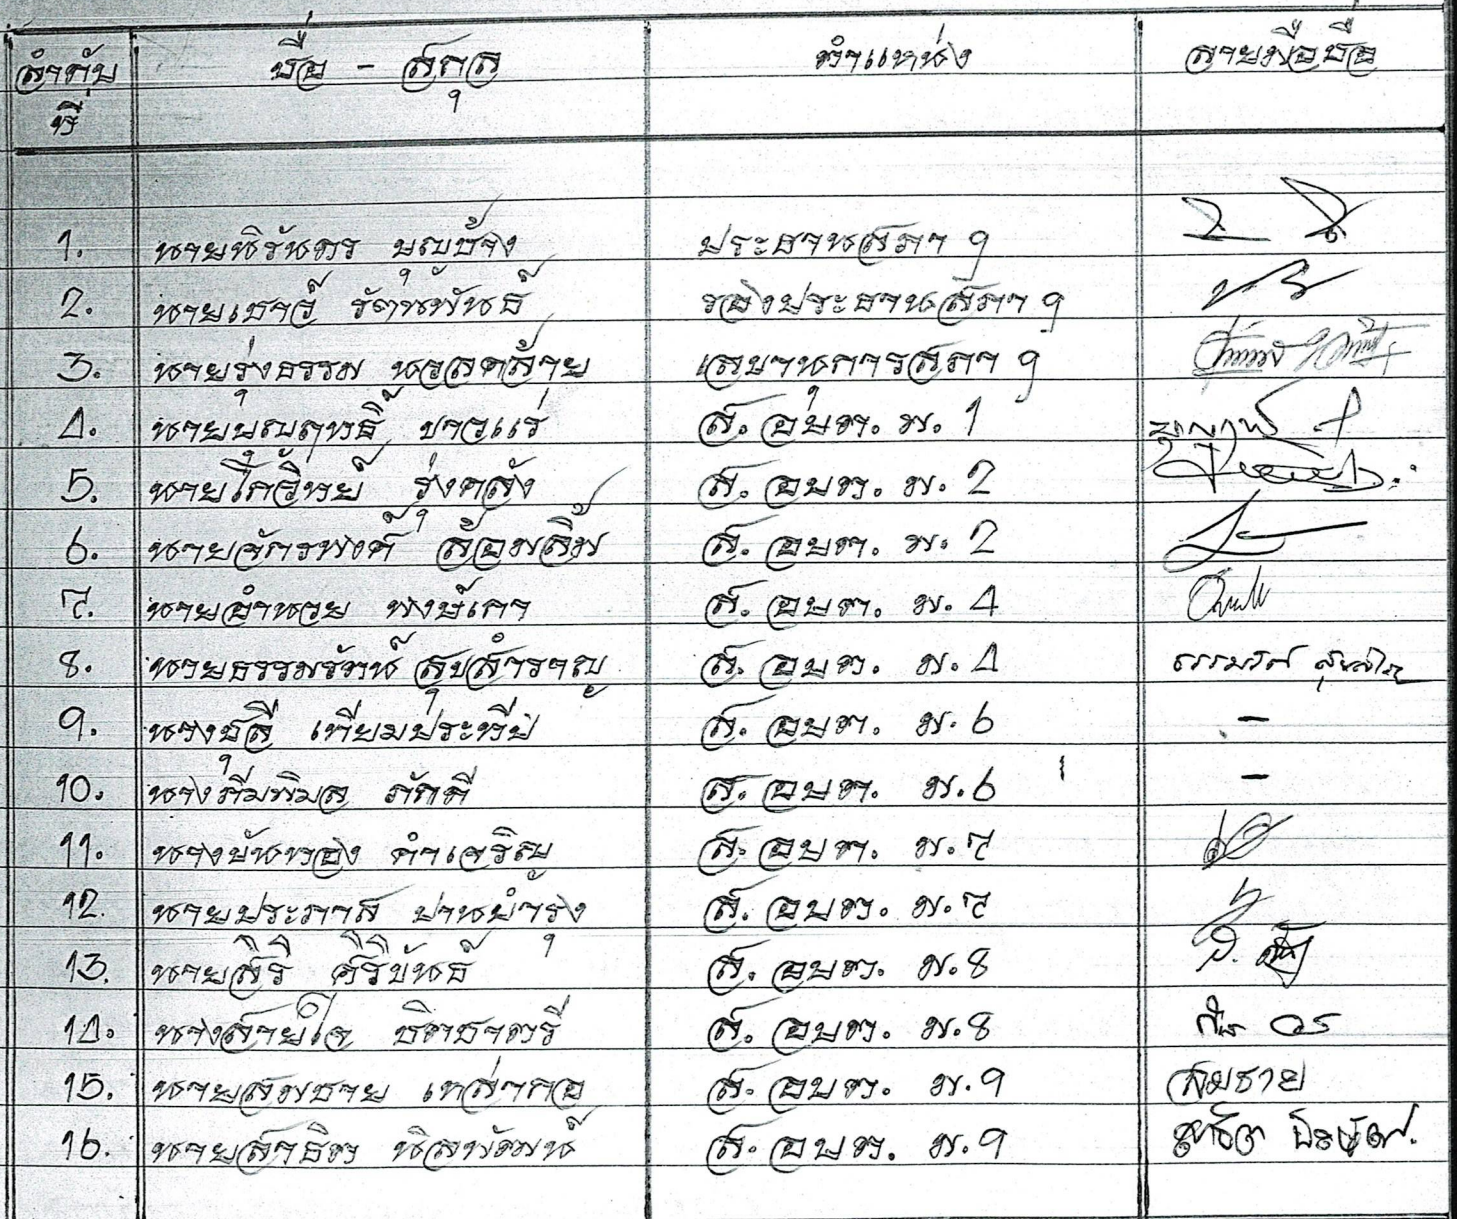 ลำดับที่ ชื่อ - สกุล ตำแหน่ง ลายมือชื่อ
1. นายนิรันดร บุญช้าง ประธานสภา ฯ
2. นายเชาว์ รัตนพันธ์ รองประธานสภา ฯ
3. นายรุ่งธรรม หวลคล้าย เลขานุการสภา ฯ
4. นายบุญฤทธิ์ ขาวแร่ ส. อบต. ม. 1
5. นายโกวิทย์ รุ่งกลัง ส. อบต. ม. 2
6. นายจักรพงศ์ ล้อมลิ้ม ส. อบต. ม. 2
7. นายอำนวย พงษ์เภา ส. อบต. ม. 4
8. นายธรรมรัตน์ สุขสำราญ ส. อบต. ม. 4
9. นางชุลี เทียมประทีป ส. อบต. ม. 6 -
10. นางภีมพิมล ภักดี ส. อบต. ม. 6 -
11. นางบันทอง คำเจริญ ส. อบต. ม. 7
12. นายประภาส ปานบำรุง ส. อบต. ม. 7
13. นายสิริ ศิริขันธ์ ส. อบต. ม. 8
14. นางสายใจ ชิตชาตรี ส. อบต. ม. 8
15. นายสมชาย เหล่ากอ ส. อบต. ม. 9 สมชาย
16. นายสาธิต นิลพัฒน์ ส. อบต. ม. 9